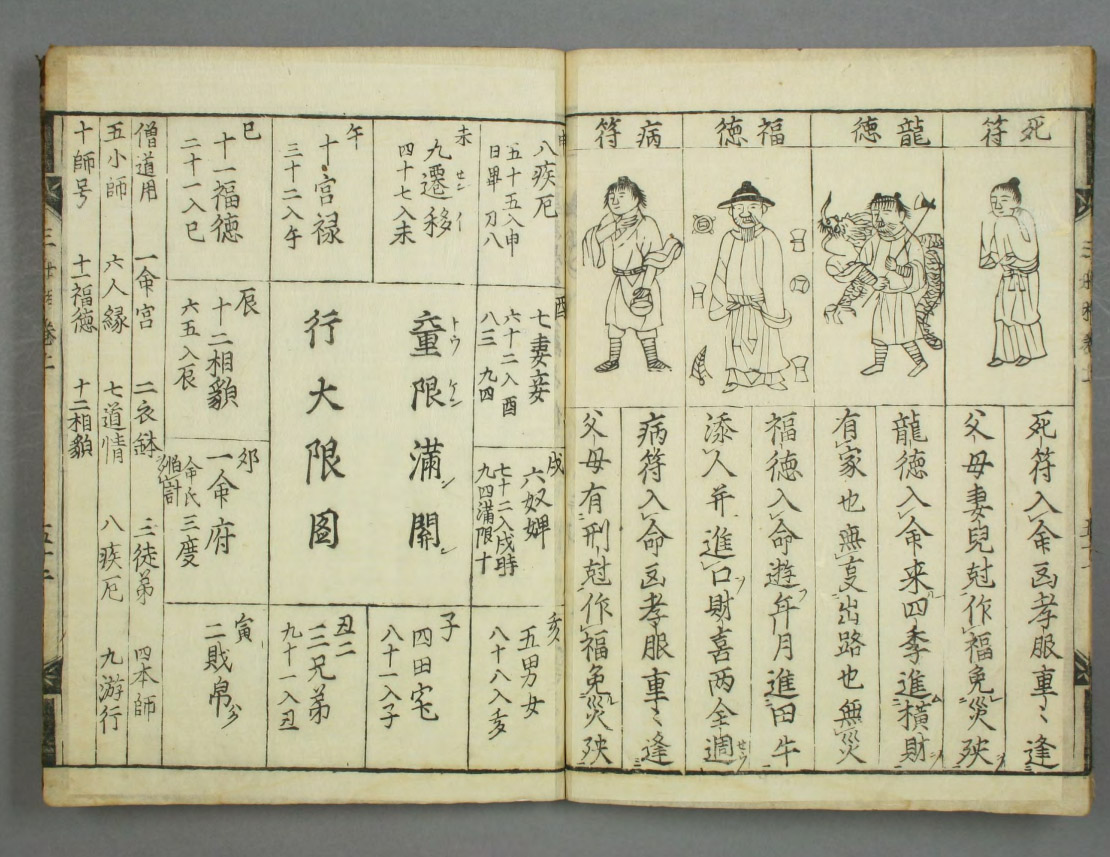 死符
龍德
福徳
病符
死符入命凶孝服重〻逢
父母妻兒尅作福免災殃
龍徳入命来四季進橫財
有家也無㐫出路也無災
福徳入命遊年月進田牛
添人并進口財喜两全週
病符入命凶孝服重〻逢
父母有刑尅作福免災殃
申
八疾厄
五十五入申
日畢 刀八
未
九遷移
四十七入未
午
十宮禄
三十二入午
巳
十一福徳
二十一入巳
酉
七妻妾
六十二入酉
八三 九四
辰
十二相貌
六五入辰
童限满関
行大限图
戌
六奴婢
七十二入戌時
九四满限十
卯
一命府
三度
亥
五男女
八十八入亥
子
四田宅
八十一入子
丑二
三兄弟
九十一入丑
寅
二財帛
僧道用 一命宮 二衣鉢 三徒弟 四本師
五小師 六人緣 七道情 八疾厄 九游行
十師号 十一福徳 十二相貌